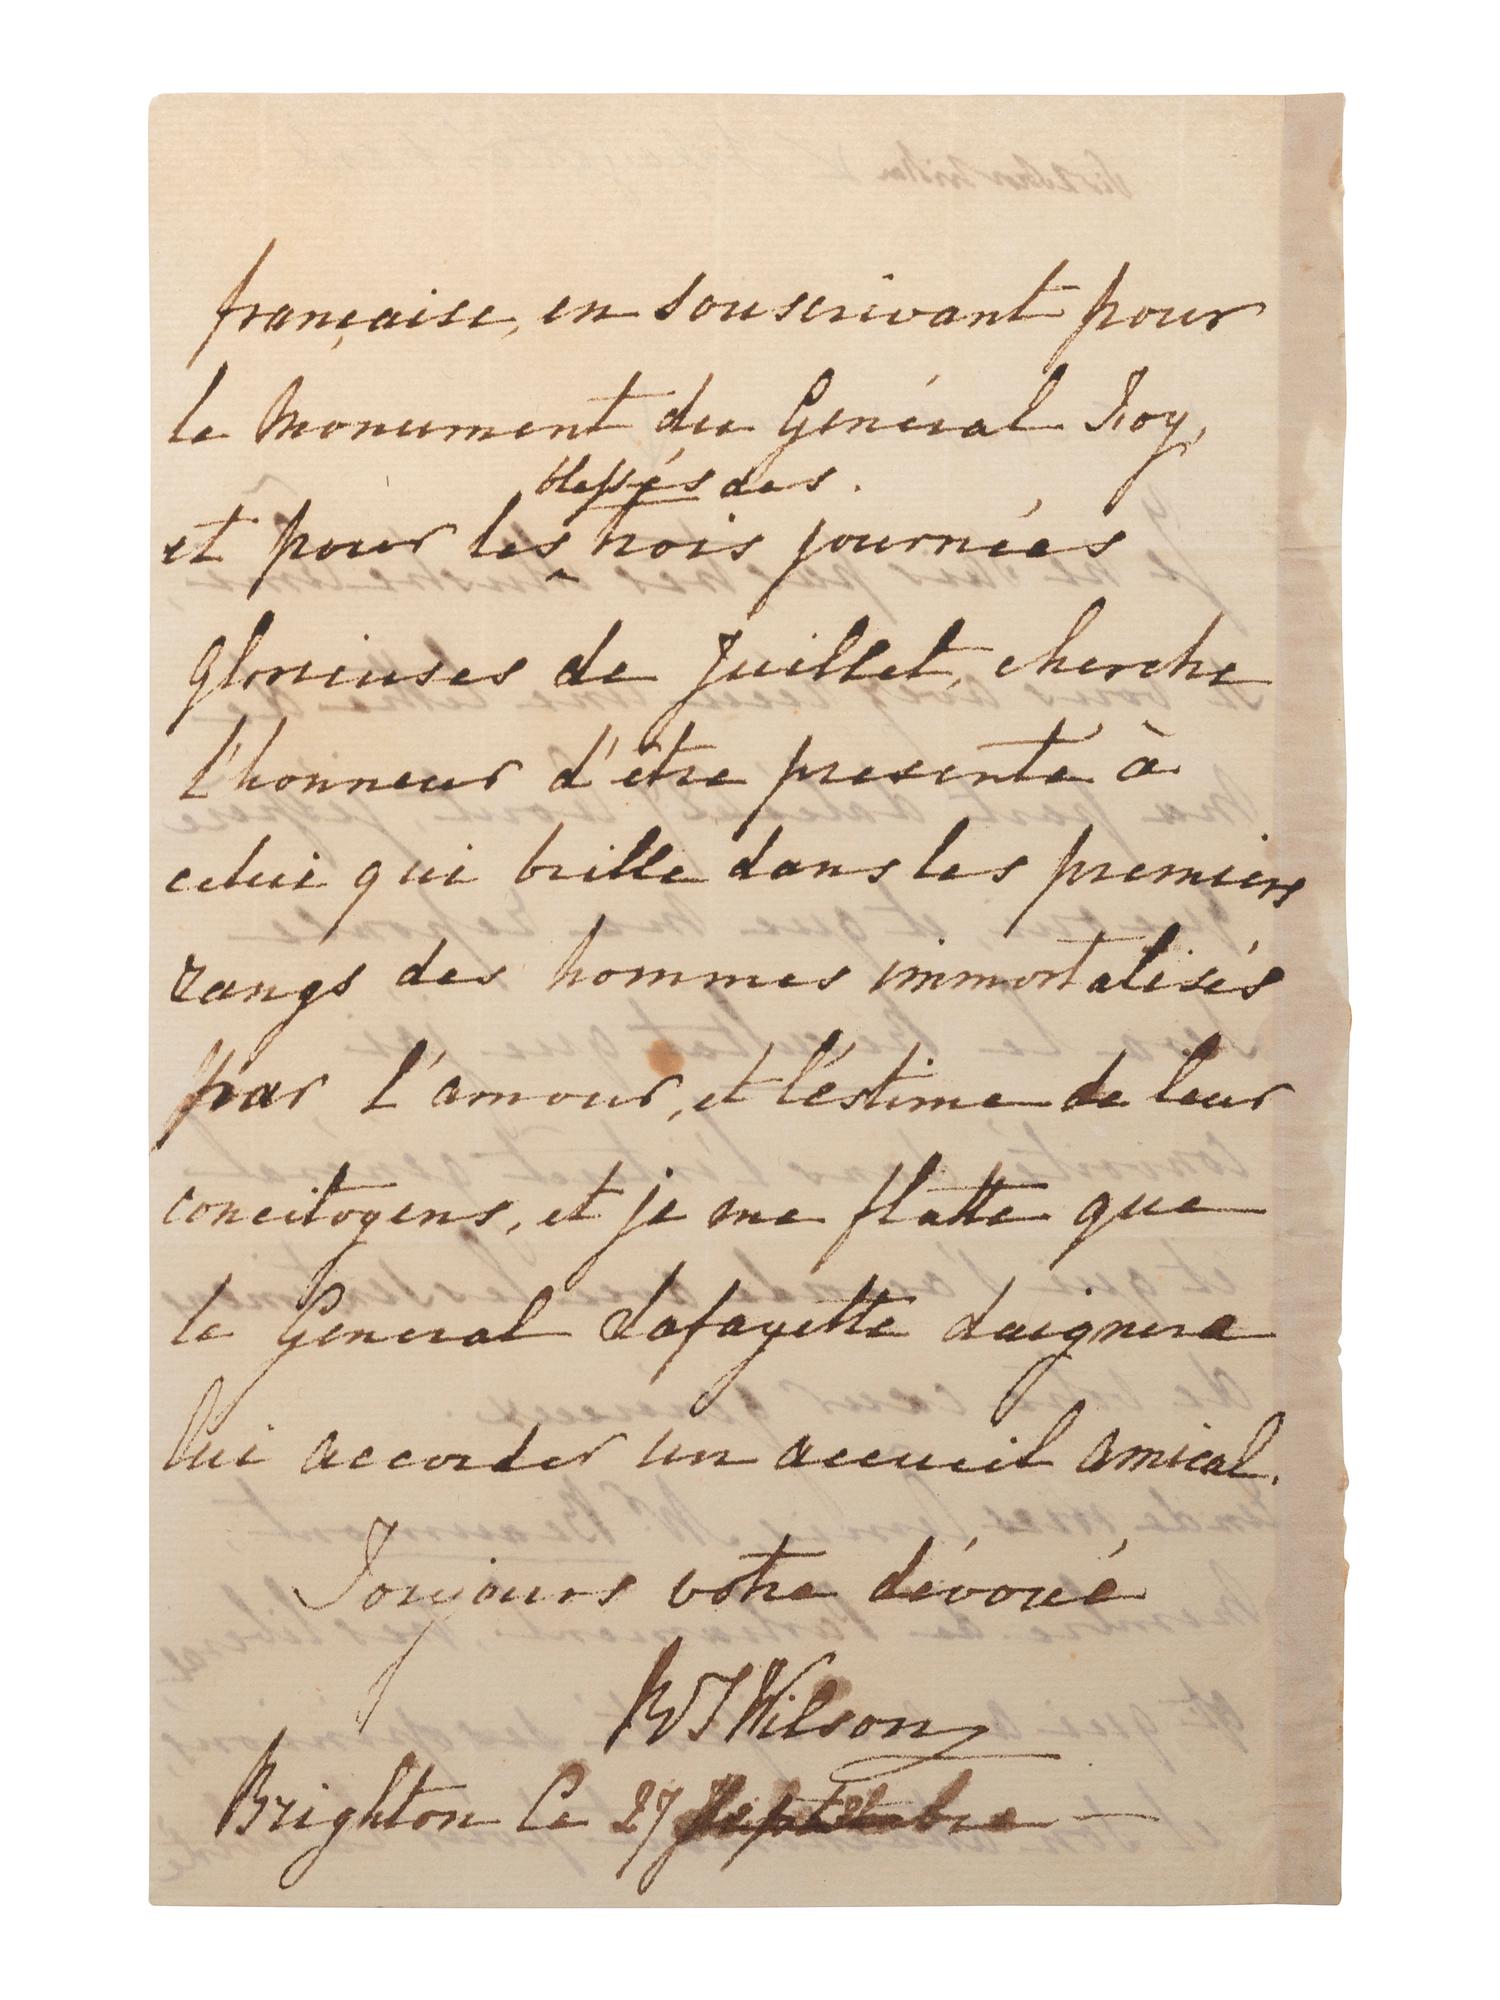 française, en souscrivant pour
le Monument du Général Foy,
blessés des
et pour les trois journées
glorieuses de Juillet, cherche
l'honneur d'être presenté à
celui qui brille dans les premiers
rangs des hommes immortalisés
par l'amour, et l'éstime de leur
concitoyens, et je me flatte que
le General Lafayette daignera
lui accorder un accueil amical.
Toujours votre dévoué
RTWilson
Brighton Ce 27 Septembre